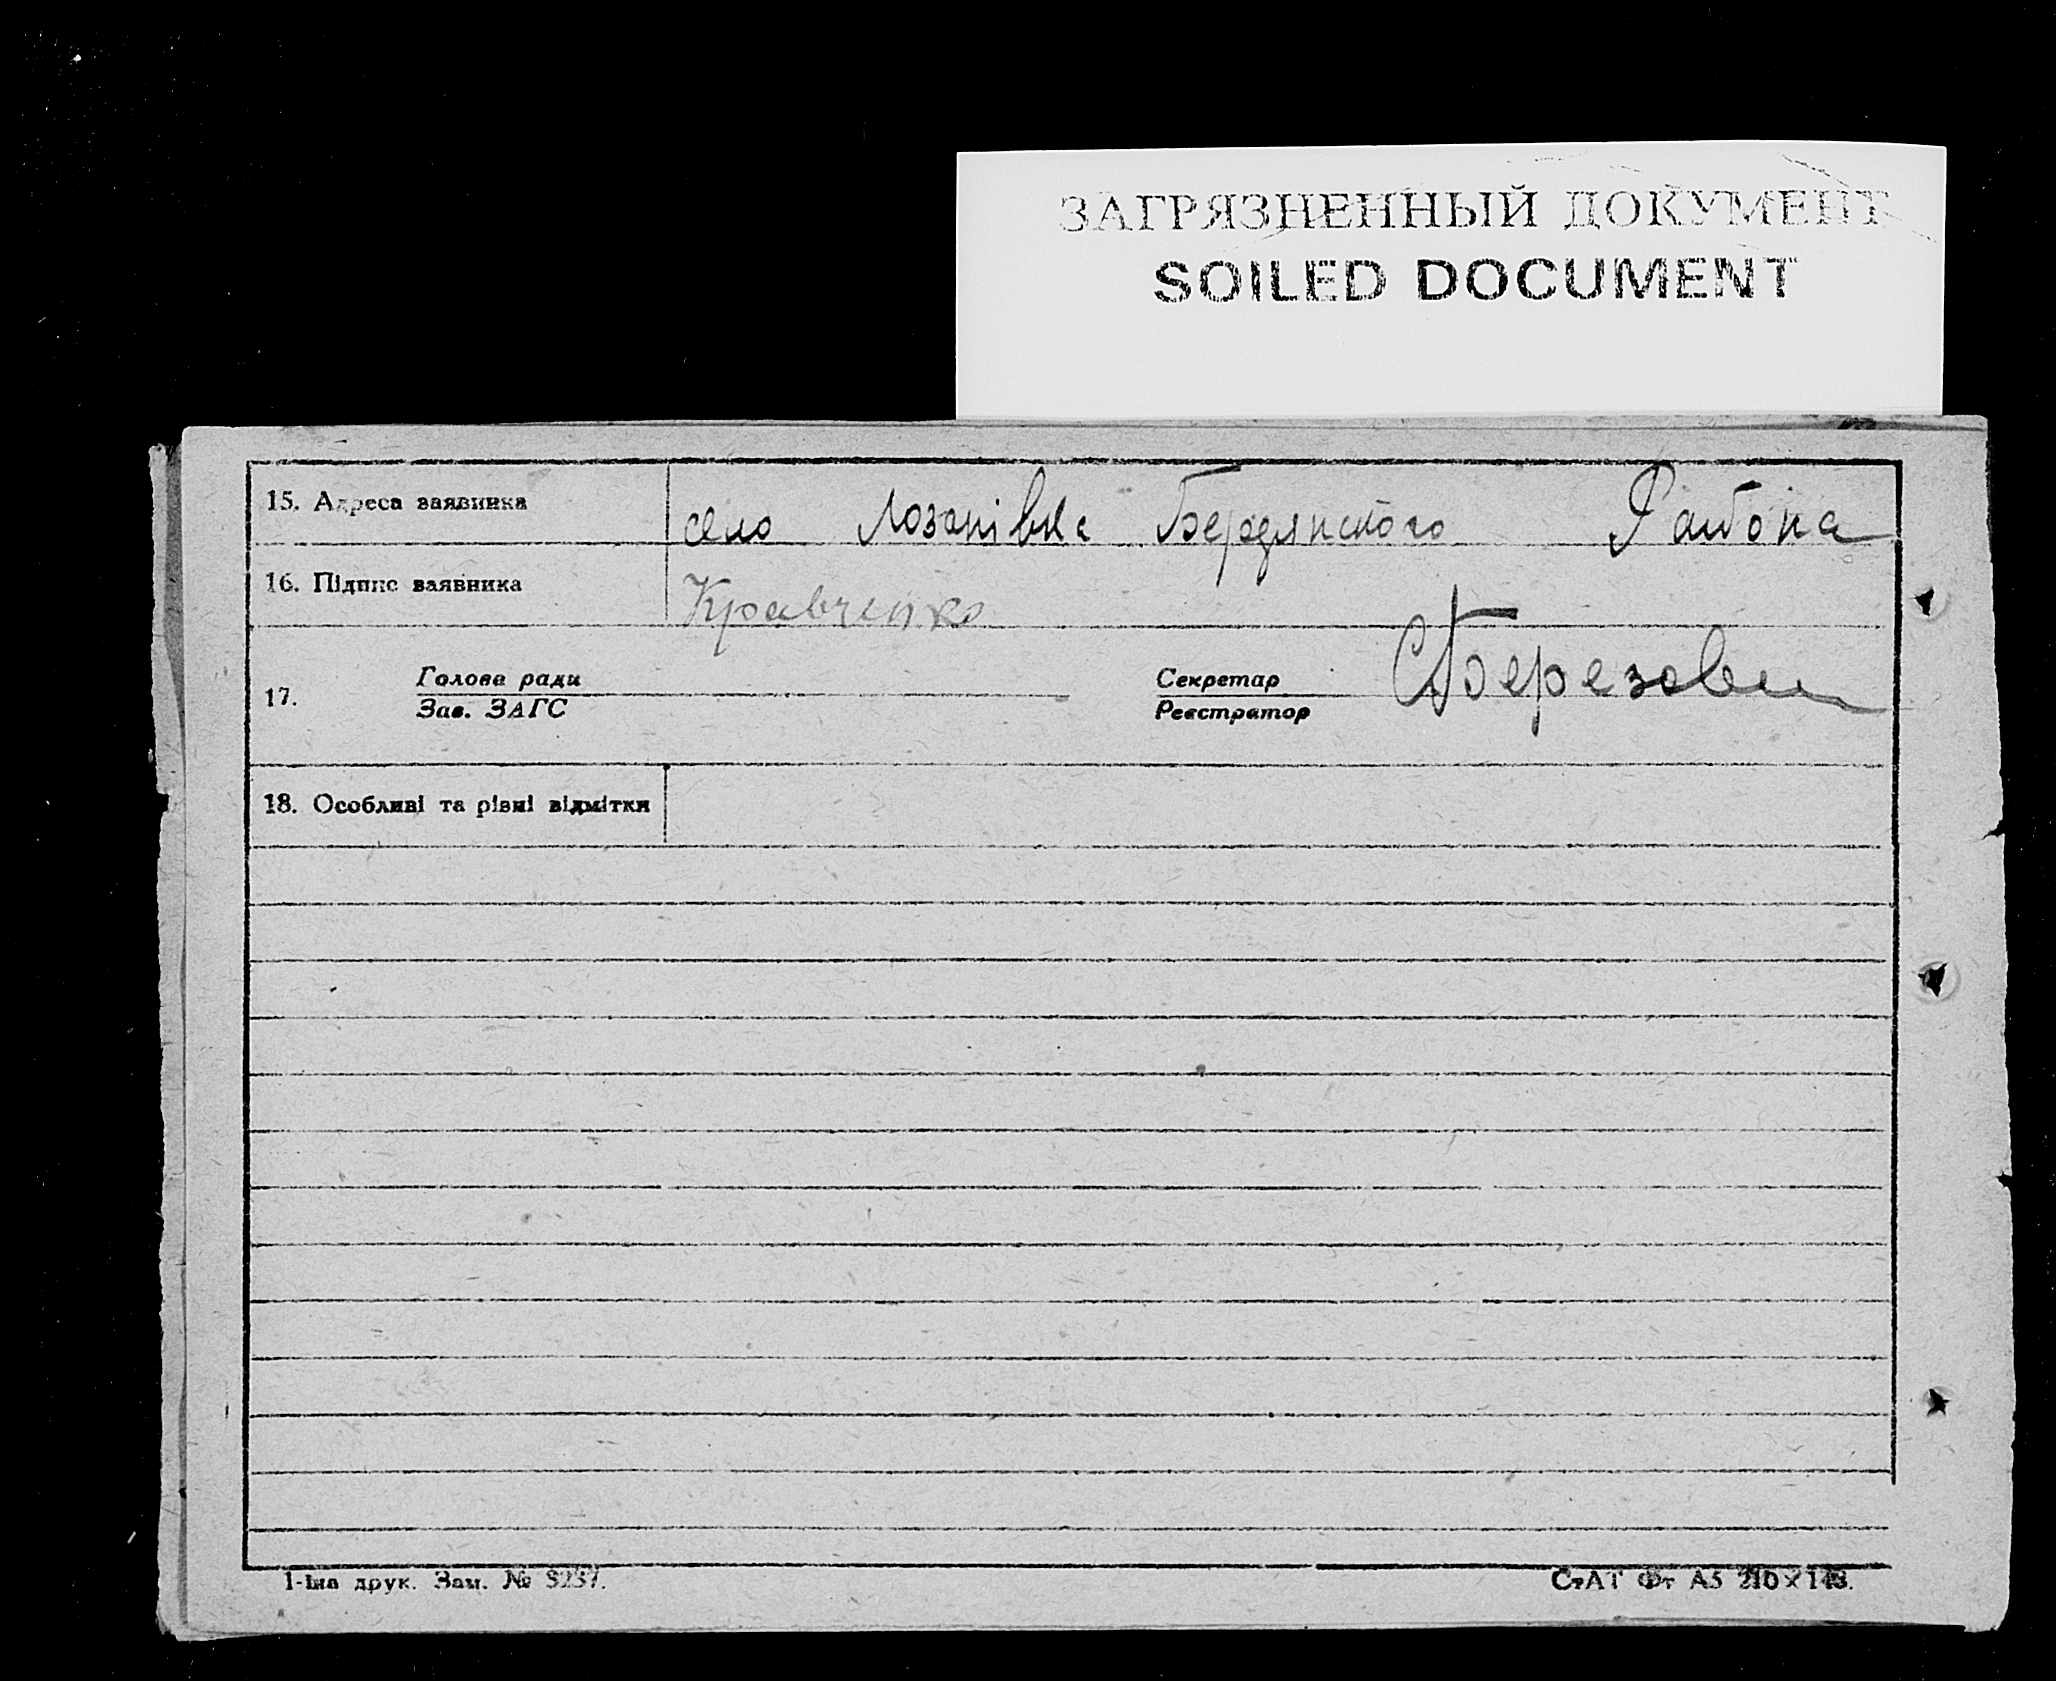 ЗАГРЯЗНЕННЫЙ ДОКУМЕНТ
SOILED DOCUMENT
15. Адреса заявника село Лозанівка Бердянского Района
16. Підпис заявника Кравченко
17. Голова ради Секретар
Зав. ЗАГС Реєстратор
18. Особливі та різні відмітки
1-ша друк. Зам. №
СтАТ Фт А5 210×148.